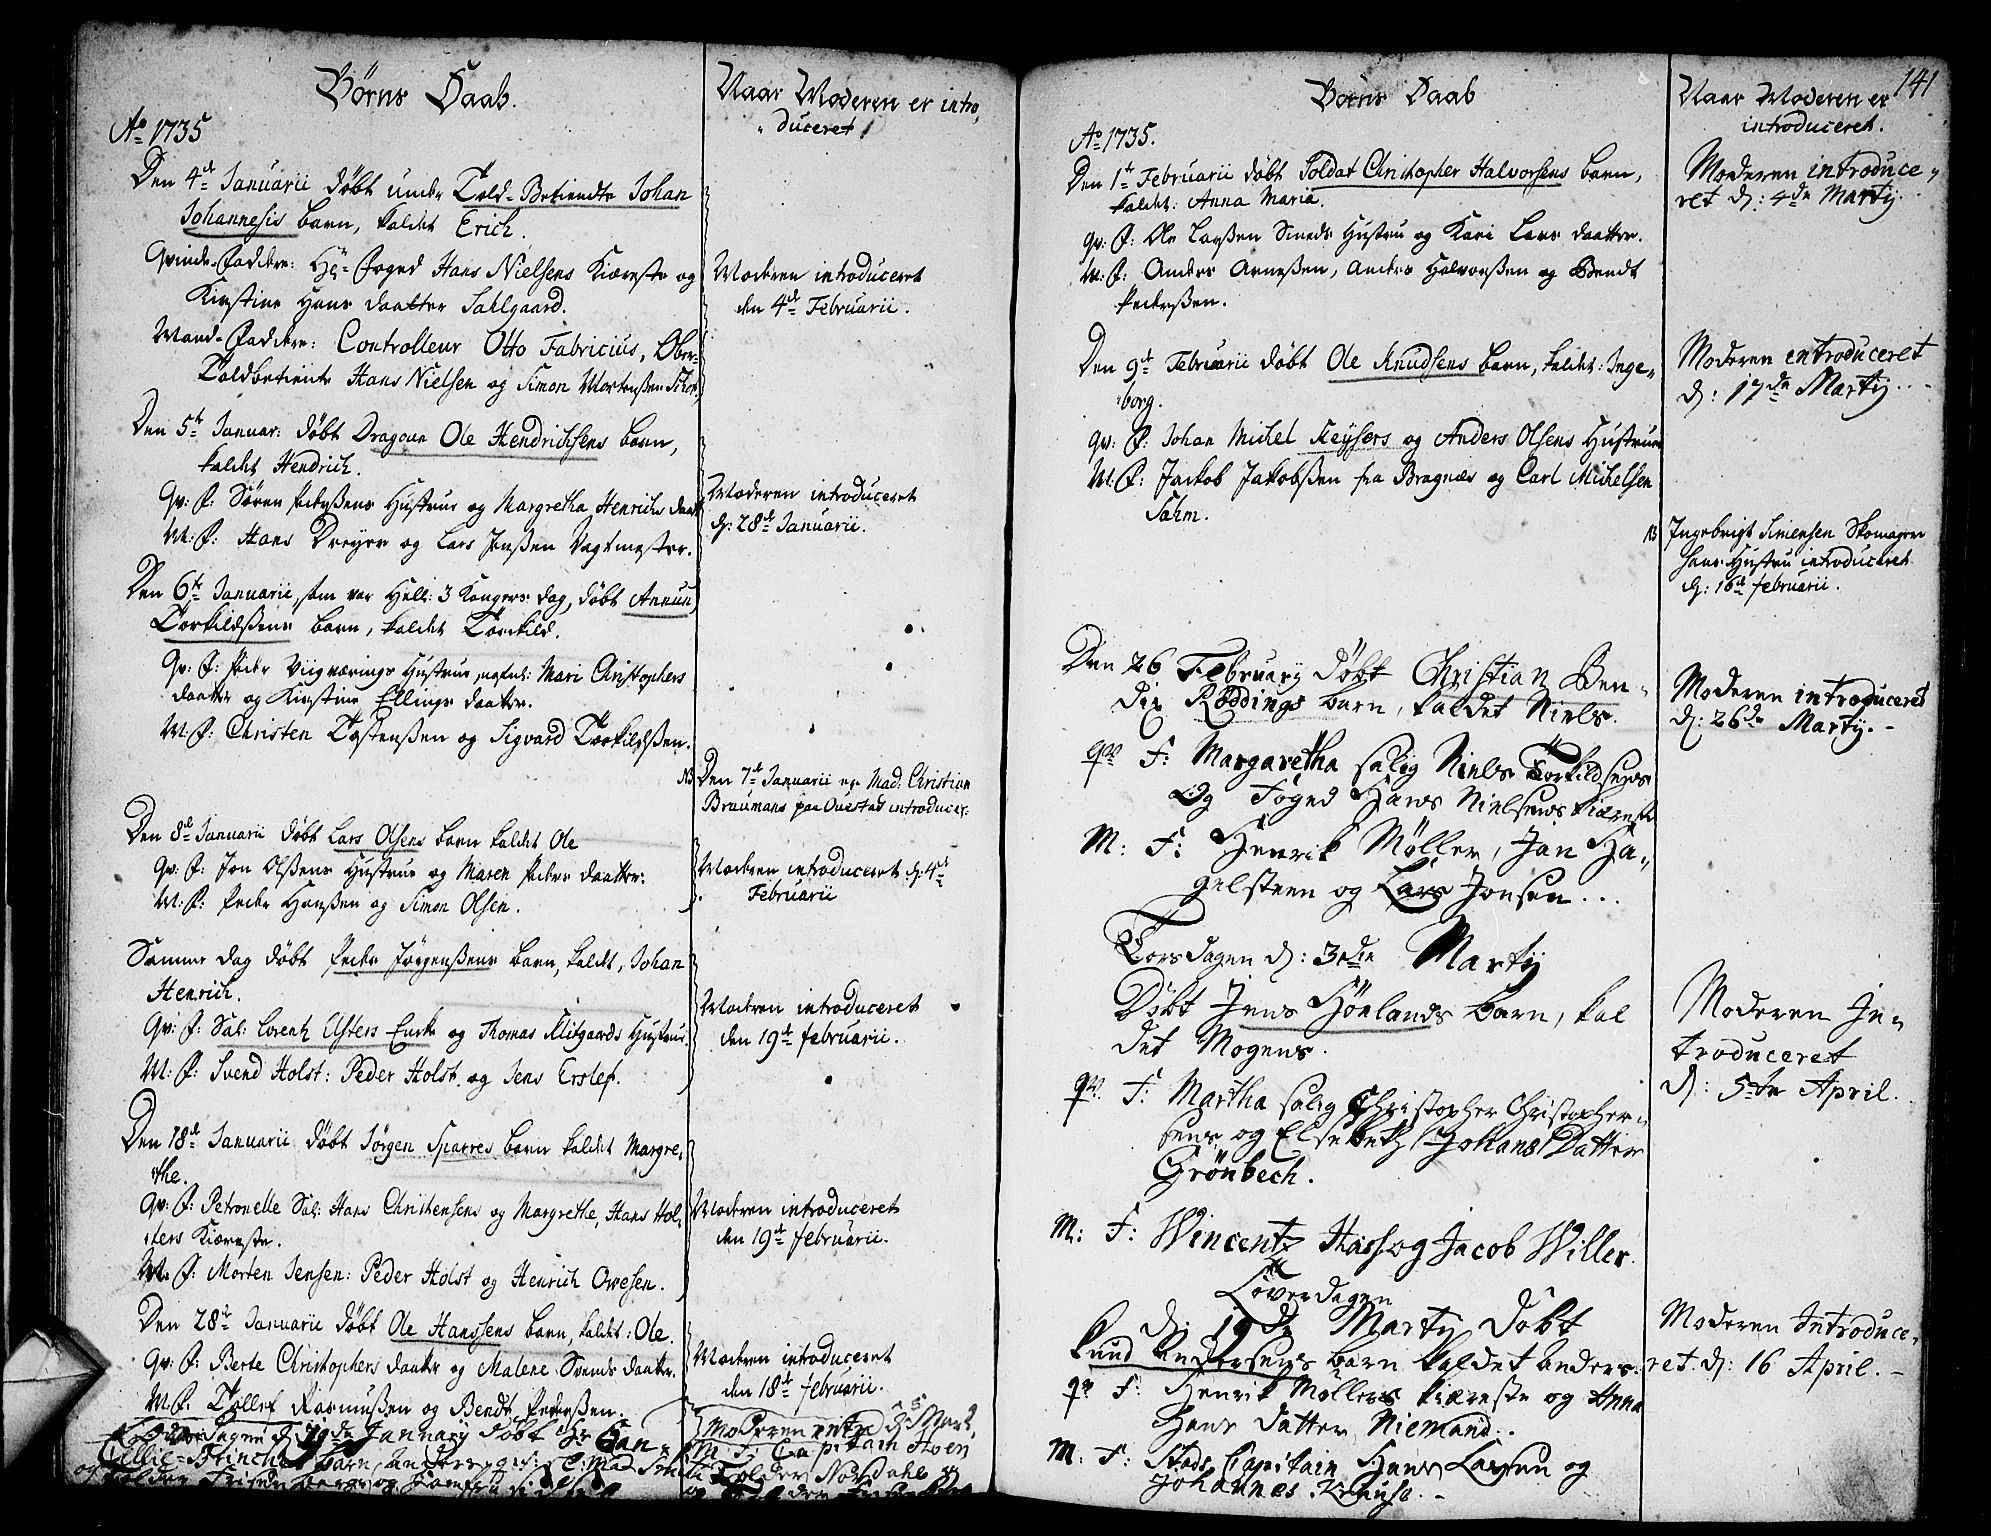 Börns Daab.
Ao 1735
Den 4de Januarii döbt under Told-Betiendte Johan
Johannesis barn, kaldet Erich.
Qvinde-Faddere: Hr: Foged Hans Nielsens Kiæreste og
Kirstine Hans daatter Sahlgaard.
Mand-Faddere: Controlleur Otto Fabricius, Ober-
Toldbetiente Hans Nielsen og Simon Mortenßen
Den 5te Januar: döbt Dragoun Ole Hendrichsens barn,
kaldet Hendrich.
Qv: F: Sören Pederßens Hustrue og Margretha Henrichs daat
M: F: Hans Dreyer og Lars Jenßen Vagtmester.
Den 6te Januarii, som var Hell: 3 Kongers dag, döbt Annun
Torkildßens barn, kaldet Torckild.
Qv: F: Peder Viigværings Hustrue, Mari Christophers
daatter og Kirstine Ellings daatter.
M: F: Christen Tostenßen og Sigvard Torkildßen.
Den 8de Januarii döbt Lars Olsens barn kaldet Ole
Qv: F: Jon Olßens Hustrue og Maren Peders daatter.
M: F: Peder Hanßen og Simon Olsen.
Samme dag döbt Peder Jörgenßens barn, kaldet, Johan
Henrich.
Qv: F: Sal: Lorentz Ulsters Encke og Thomas Klitgaards Hustrue.
M: F: Svend Holst: Peder Holst og Jens Erslef.
Den 18de Januarii döbt Jörgen Sparres barn kaldet Margre-
the.
Qv: F: Petronelle Sal: Hans Christensens og Margrethe, Hans Hol-
sters Kiæreste.
M: F: Morten Jensen: Peder Holst og Henrich Ovesen.
Den 28de Januarii döbt Ole Hanssens barn, kaldet: Ole.
Qv: F: Berte Christophers daatter og Malene Svends daatter.
M: F: Tollef Rasmußen og Bendt Pederßen.
Januarij döbt Hr
Naar Moderen er intro-
duceret
Moderen introduceret
den 4de Februarii.
Moderen introduceret
d: 28de Januarii.
NB Den 7de Januarii er Mad: Christian
Braumans paa Ouestad introducer:
Moderen introduceret d: 4de
Februarii
Moderen introduceret
den 19de februarii.
Moderen introduceret
den 19de februarii.
Moderen introduceret
den 18de februarii.
M: F: Capitain
Nordahl og
141
Börns Daab
Ao 1735.
Den 1te Februarii döbt Soldat Christopher Halvorsens barn,
kaldet: Anna Maria.
Qv: F: Ole Larßen Smeds Hustru og Kari Lars daatter.
M: F: Anders Arneßen, Anders Halvorßen og Bendt
Pederßen.
Den 9de Februarii döbt Ole Knudsens barn, kaldet: Inge-
borg.
Qv: F: Johan Michel Keysers og Anders Olsens Hustruer
M: F: Jackob Jakobßen fra Bragnæs og Carl Michelsen
Sahm.
Den 26 February döbt Christian Ben-
dix Röddings barn, kaldet Niels.
qv F: Margaretha salig Niels Torkildsens
Og Foged Hans Nielsens kiæreste
M: F: Henrik Møller, Jan Ha-
gelsteen og Lars Jonsen...
Torsdagen d: 3die Martij
Döbt Jens Hörlands barn, kal
det Mogens.
qv. F: Martha salig Christopher Christopher-
sens og Elsebeth Johans Datter
Grönbech.
M: F: Wincentz Hass og Jacob Willer.
Löverdagen
d: 19de Martij Döbt
Knud Andersens barn kaldet Anders
qv F: Henrik Møllers kiæreste og Anna
Hans datter Niemand.
M: F: Stads Capitain Hans Larsen og
Johannes Kruuse.
Naar Moderen er
introduceret.
Moderen introduce-
ret d: 4de Marty.
Moderen introduceret
d: 17de Martij.
NB Ingebrigt Simensen Skomager
hans Hustru introduceret
d: 16de februarii.
Moderen introduceret
d: 26de Martij.
Moderen In-
troduceret
d: 5te April.
Moderen Introduce-
ret d: 16 April.